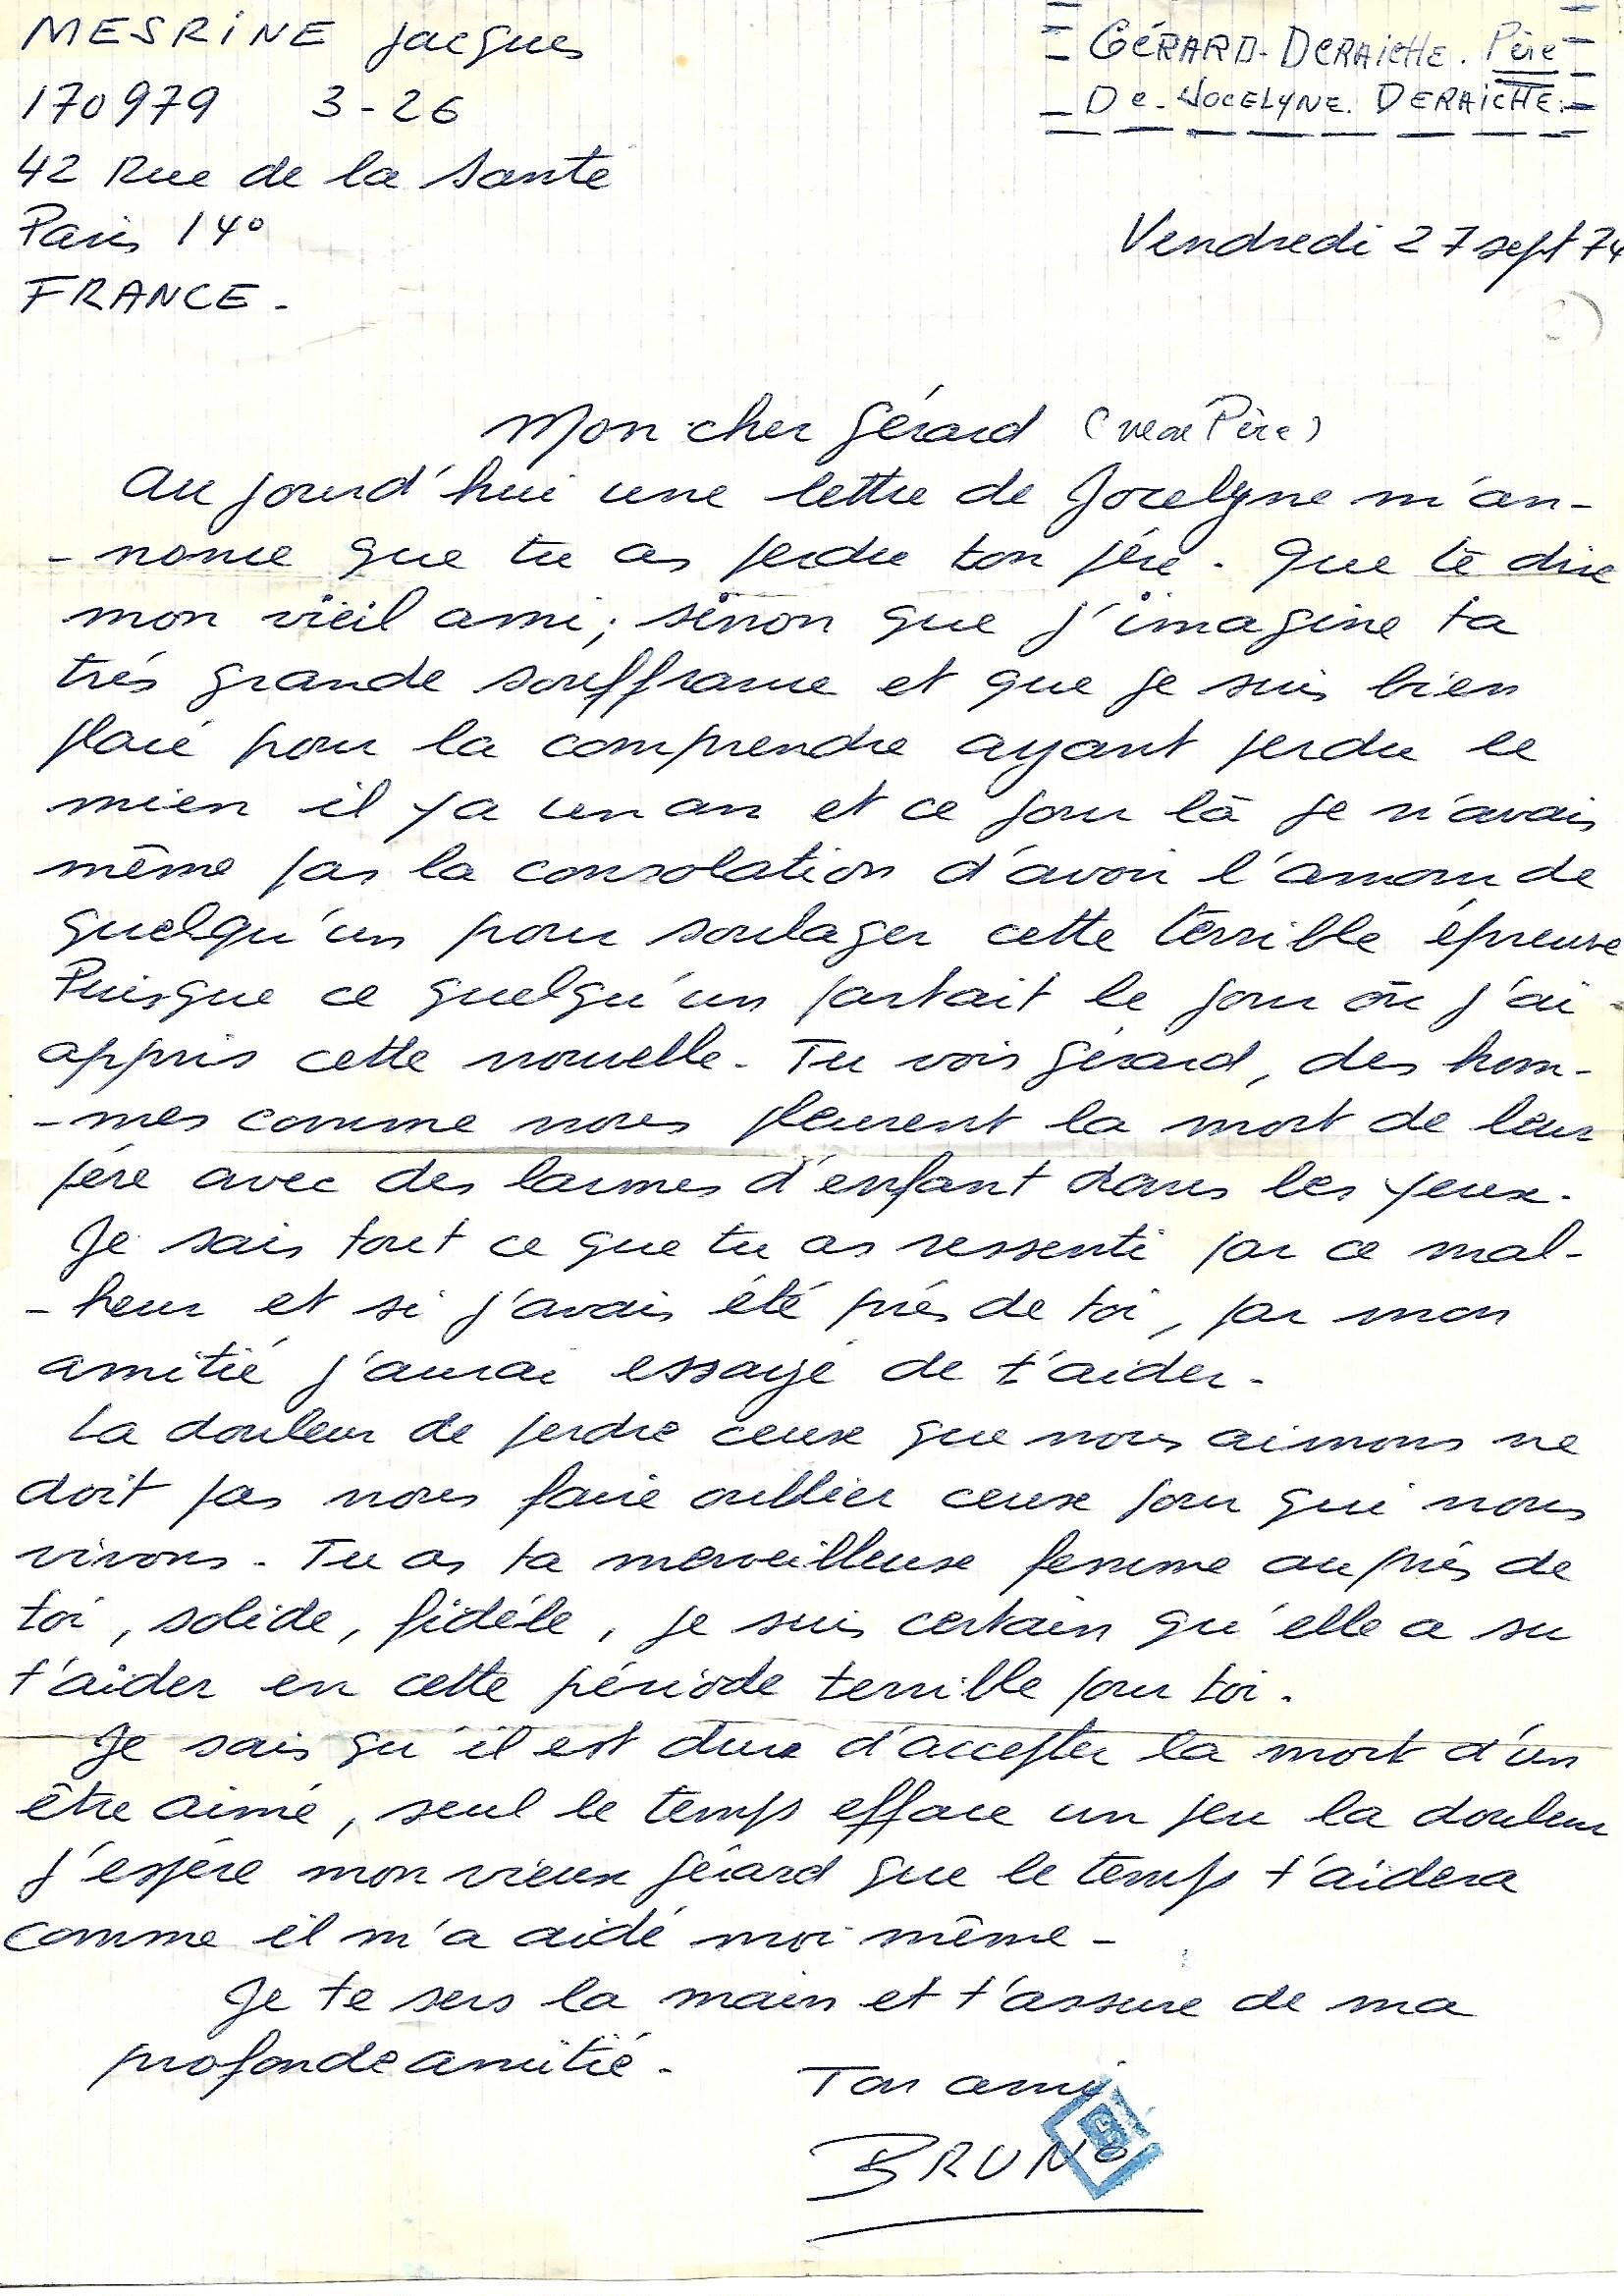 MESRINE Jacques
170979 3-26
42 Rue de la Santé
Paris 14°
FRANCE -
GÉRARD-DERAICHE. Père
De-JOCELYNE. DERAICHE.
Vendredi 27 sept 74
Mon cher Gérard (Père)
Au jourd'hui une lettre de Jocelyne m'an-
- nonce que tu as perdu ton père. Que te dire
mon vieil ami ; sinon que j'imagine ta
trés grande souffrance et que je suis bien
placé pour la comprendre ayant perdu le
mien il y a un an et ce jour là je n'avais
même pas la consolation d'avoir l'amour de
quelqu'un pour soulager cette terrible épreuve
Puisque ce quelqu'un partait le jour où j'ai
appris cette nouvelle - Tu vois Gérard, des hom-
- mes comme nous pleurent la mort de leur
père avec des larmes d'enfant dans les yeux.
Je sais tout ce que tu as ressenti par ce mal-
- heur et si j'avais été prés de toi, par mon
amitié j'aurai essayé de t'aider.
La douleur de perdre ceux que nous aimons ne
doit pas nous faire oublier ceux pour qui nous
vivons. Tu as ta merveilleuse femme auprés de
toi, solide, fidéle, je suis certain qu'elle a su
t'aider en cette période terrible pour toi.
Je sais qu'il est dure d'accepter la mort d'un
être aimé, seul le temps efface un peu la douleur
J'espère mon vieux Gérard que le temps t'aidera
comme il m'a aidé moi même -
Je te sers la main et t'assure de ma
profonde amitié.
Ton ami
BRUNO